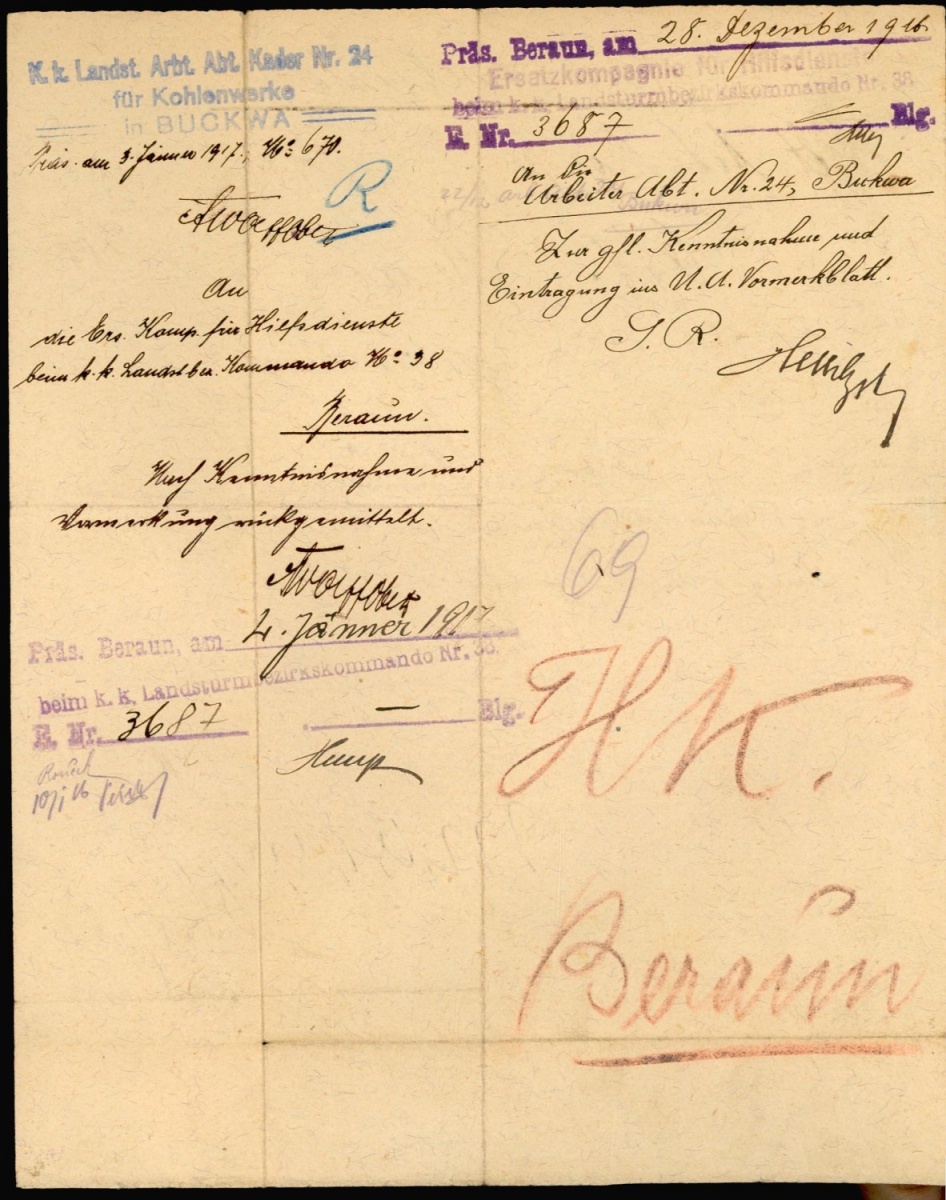 K. k. Landst. Arbt. Abt. Kader Nr. 24
für Kohlenwerke
in BUCKWA
Präs. am 3. Jänner 1917., No 670.
R
An
die Ers. Komp. für Hilfsdienste
beim k. k. Landst. bez. Kommando No 38
Beraun.
Nach Kenntnisnahme und
Vormerkung rückgemittelt.
Präs. Beraun, am 4. Jänner 1917
beim k. k. Landsturmbezirkskommando Nr. 38.
E. Nr. 3687 — Blg.
Präs. Beraun, am 28. Dezember 1916
Ersatzkompagnie für Hilfsdienste
beim k. k. Landsturmbezirkskommando Nr. 38
E. Nr. 3687 Blg.
An die
Arbeiter Abt. Nr. 24, Buckwa
Zur gfl. Kenntnisnahme und
Eintragung ins U. A. Vormerkblatt.
S. R.
69
HK.
Beraun